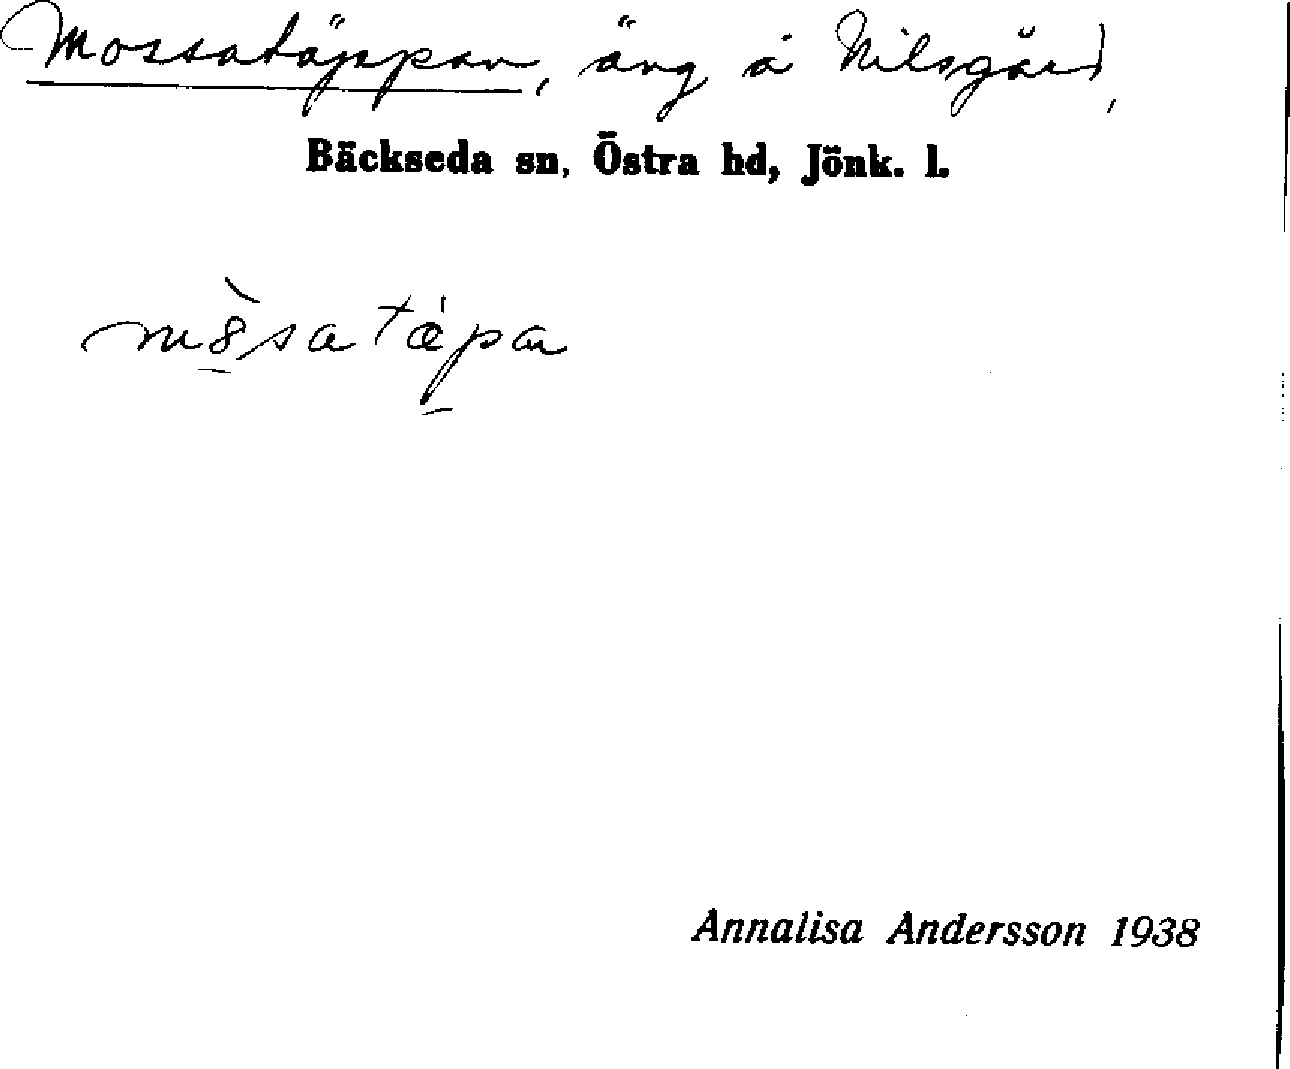 Mossatäppan, äng å Nilsgård,
Bäckseda sn, Östra hd, Jönk. l.
mòsatápa
Annalisa Andersson 1938